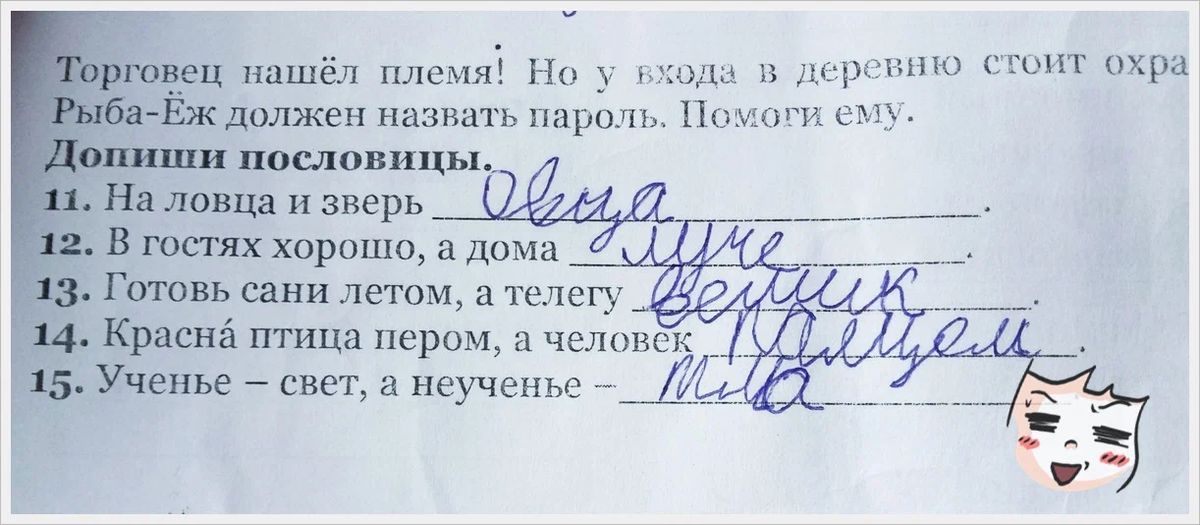 Торговец нашёл племя! Но у входа в деревню стоит охра
Рыба-Ёж должен назвать пароль. Помоги ему.
Допиши пословицы.
11. На ловца и зверь овца.
12. В гостях хорошо, а дома луче.
13. Готовь сани летом, а телегу.
14. Краснá птица пером, а человек палцем.
15. Ученье – свет, а неученье – тма